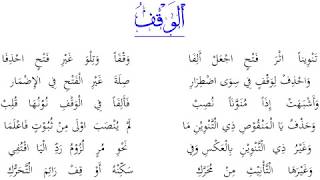 اَلْوَقْفُ
تَنْوِيناً اثْرَ فَتْحٍ اجْعَلْ أَلِفَا وَقْفاً وَتِلْوَ غَيْرِ فَتْحٍ احْذِفَا
وَاحْذِفْ لِوَقْفٍ فِي سِوَى اضْطِرَارِ صِلَةَ غَيْرِ الْفَتْحِ فِي الإِضْمَارِ
وَأَشْبَهَتْ إِذاً مُنَوَّناً نُصِبْ فَأَلِفاً فِي الْوَقْفِ نُونُهَا قُلِبْ
وَحَذْفُ يَا الْمَنْقُوصِ ذِي التَّنْوِينِ مَا لَمْ يُنْصَبَ اوْلَى مِنْ ثُبُوتٍ فَاعْلَمَا
وَغَيْرُ ذِي التَّنْوِينِ بِالْعَكْسِ وَفِي نَحْوِ مُرٍ لُزُومُ رَدِّ الْيَا اقْتُفِي
وَغَيْرَهَا التَّأْنِيثِ مِنْ مُحَرَّكِ سَكِّنْهُ أَوْ قِفْ رَائِمَ التَّحَرُّكِ